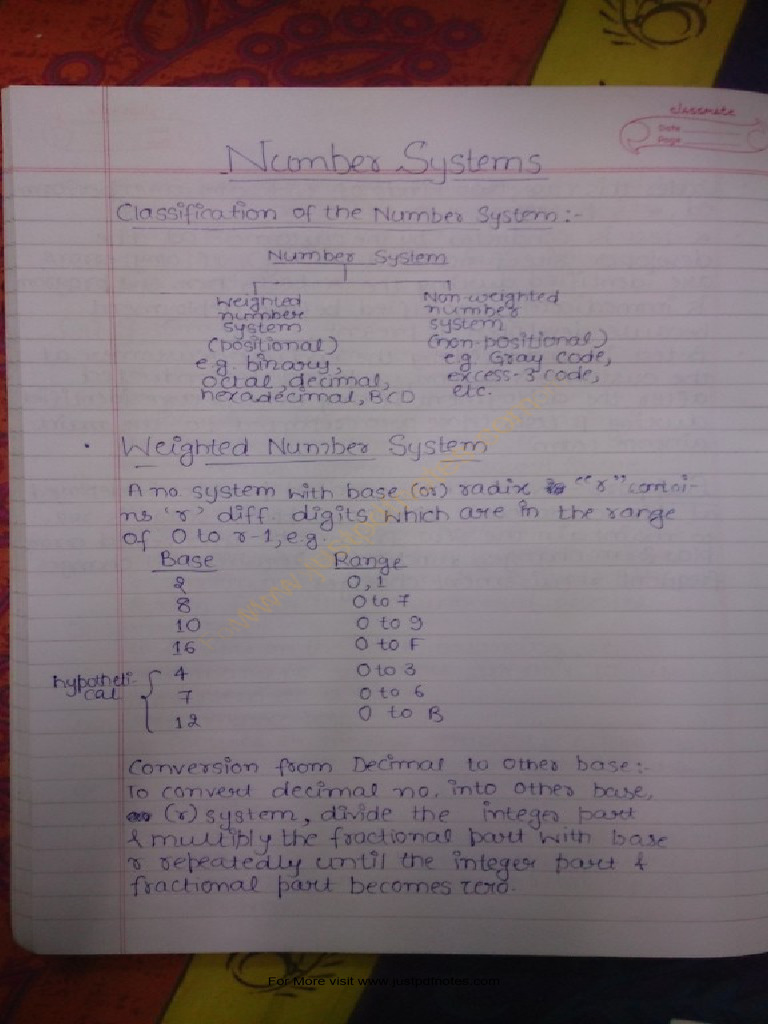 classmate
Date
Page
Number Systems
Classification of the Number System:-
Number System
Weighted
number
system
(positional)
e.g. binary,
octal, decimal,
hexadecimal, BCD
Non-weighted
number
system
(non-positional)
e.g. Gray code,
excess-3 code,
etc.
• Weighted Number System
A no. system with base (or) radix "r" contai-
ns 'r' diff. digits which are in the range
of 0 to r-1, e.g.
Base Range
2 0,1
8 0 to 7
10 0 to 9
16 0 to F
hypotheti-
cal
4 0 to 3
7 0 to 6
12 0 to B
Conversion from Decimal to other base:-
To convert decimal no. into other base,
(r) system, divide the integer part
& multiply the fractional part with base
r repeatedly until the integer part &
fractional part becomes zero.
For More visit www.justpdfnotes.com